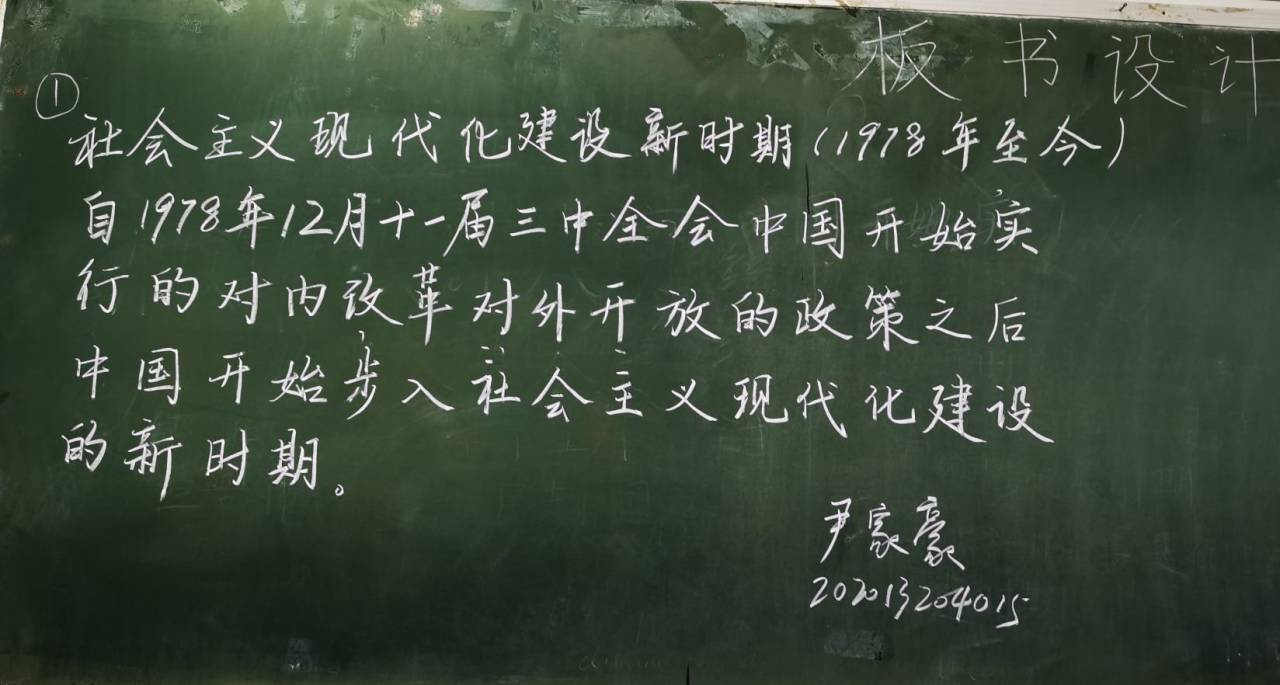 板书设计
①
社会主义现代化建设新时期(1978年至今)
自1978年12月十一届三中全会中国开始实
行的对内改革对外开放的政策之后
中国开始步入社会主义现代化建设
的新时期。
尹家豪
202013204015